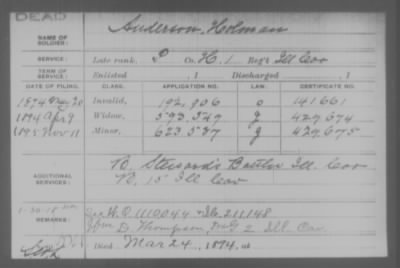 DEAD
NAME OF SOLDIER: Anderson, Holman
SERVICE: Late rank, P Co. H, 1 Reg't Ill Cav
TERM OF SERVICE: Enlisted , 1 Discharged , 1
DATE OF FILING. CLASS. APPLICATION NO. LAW. CERTIFICATE NO.
1874 May 20 Invalid, 192,906 o 141661
1894 Apr 9 Widow, 593,549 g 429,674
1895 Nov 11 Minor, 623,587 g 429,675
ADDITIONAL SERVICES: B, Steward's Battln Ill. Cav
B, 15 Ill Cav
1-30-18
REMARKS: 1110044 211,148
D. Thompson, G 2 Ill. Cav.
Died Mar 24, 1894, at